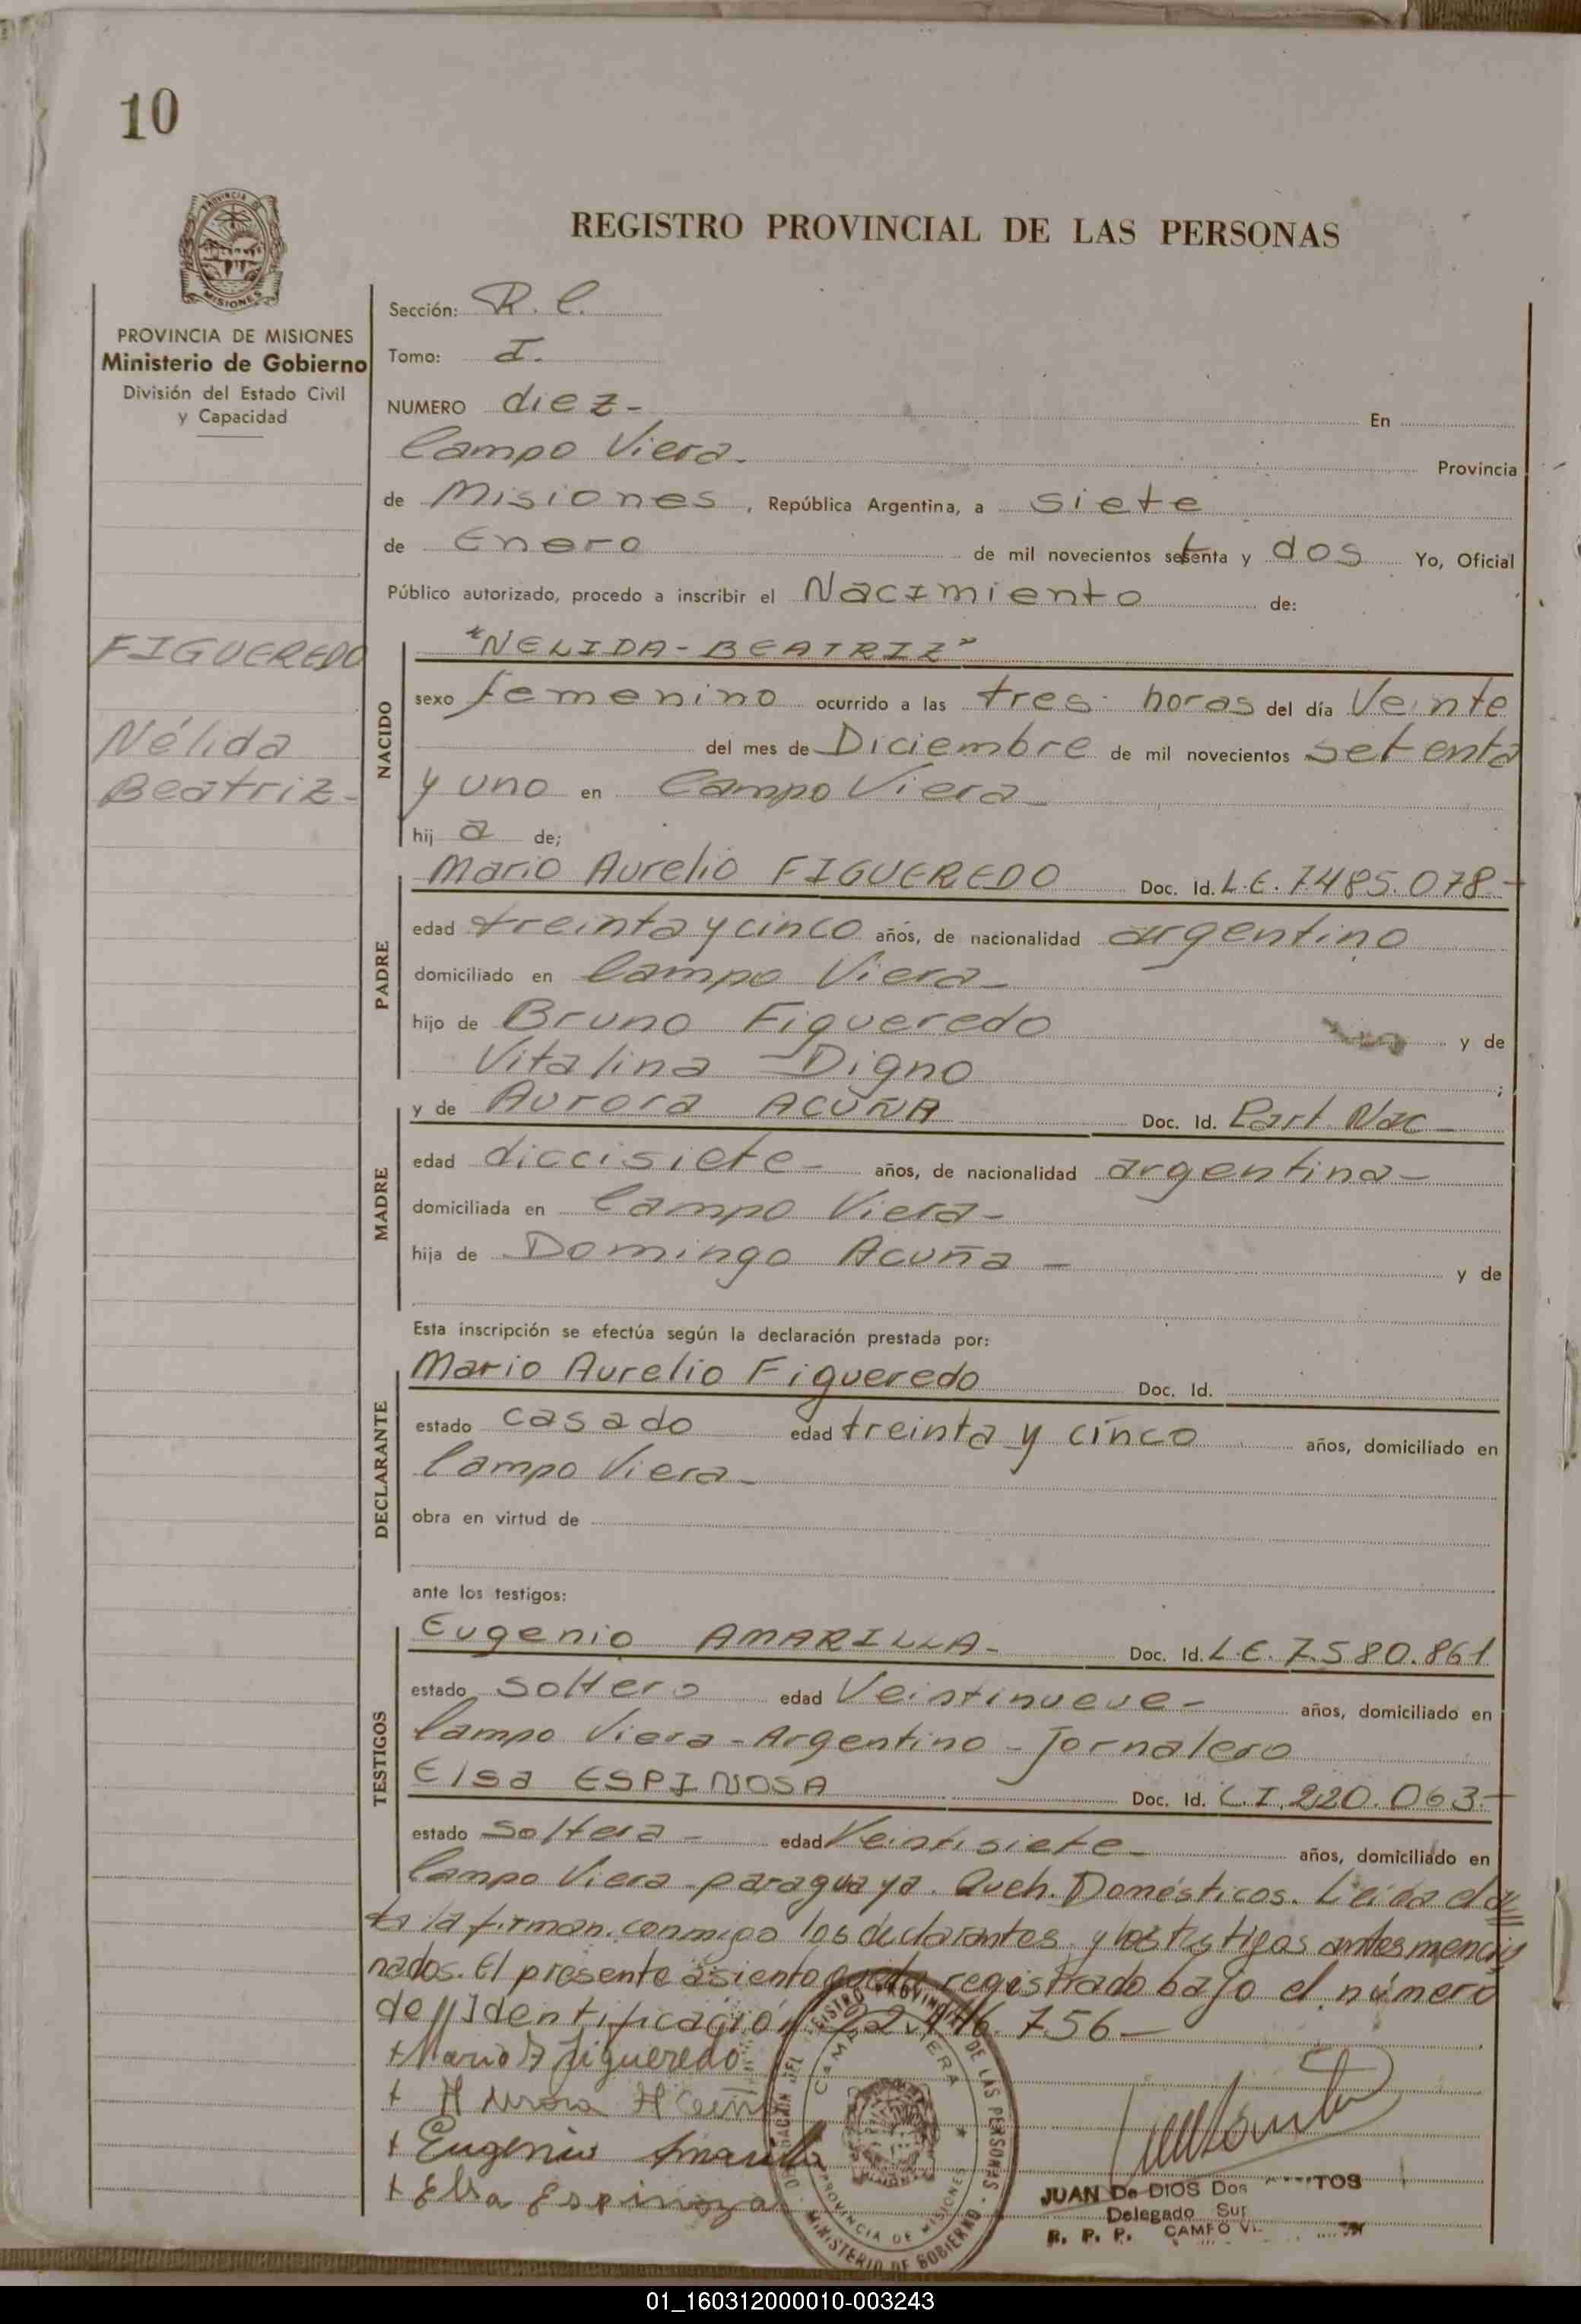 10
PROVINCIA DE
MISIONES
PROVINCIA DE MISIONES
Ministerio de Gobierno
División del Estado Civil
y Capacidad
FIGUEREDO
Nélida
Beatriz-
REGISTRO PROVINCIAL DE LAS PERSONAS
Sección: R. C.
Tomo: I.
NUMERO diez- En
Campo Viera- Provincia
de Misiones, República Argentina, a siete
de Enero de mil novecientos setenta y dos Yo, Oficial
Público autorizado, procedo a inscribir el Nacimiento de:
NACIDO
"NELIDA-BEATRIZ"
sexo femenino ocurrido a las tres horas del día Veinte
del mes de Diciembre de mil novecientos setenta
y uno en Campo Viera-
hij a de;
PADRE
Mario Aurelio FIGUEREDO Doc. Id. L.E. 7.485.078-
edad treinta y cinco años, de nacionalidad argentino
domiciliado en Campo Viera-
hijo de Bruno Figueredo y de
Vitalina Digno ;
MADRE
y de Aurora ACUÑA Doc. Id. Part. Nac-
edad diecisiete- años, de nacionalidad argentina-
domiciliada en Campo Viera-
hija de Domingo Acuña - y de
Esta inscripción se efectúa según la declaración prestada por:
DECLARANTE
Mario Aurelio Figueredo Doc. Id.
estado casado edad treinta y cinco años, domiciliado en
Campo Viera-
obra en virtud de
ante los testigos:
TESTIGOS
Eugenio AMARILLA- Doc. Id. L.E. 7.580.861
estado soltero edad Veintinueve- años, domiciliado en
Campo Viera-Argentino-Jornalero
Elsa ESPINOSA Doc. Id. C.I. 220.063.-
estado soltera- edad Veintisiete- años, domiciliado en
Campo Viera-paraguaya. Queh. Domésticos. Leida el ac
ta la firman conmigo los declarantes y los testigos antes mencio
nados. El presente asiento queda registrado bajo el número
de Identificación 756-
+ Mario A Figueredo
+ Aurora Acuña
+ Eugenio Amarilla
+ Elsa Espinoza
REGISTRO PROVINCIAL DE LAS PERSONAS
CAMPO VIERA
PROVINCIA DE MISIONES
MINISTERIO DE GOBIERNO
JUAN De DIOS Dos
Delegado Sup
R. P. P. CAMPO
01_160312000010-003243